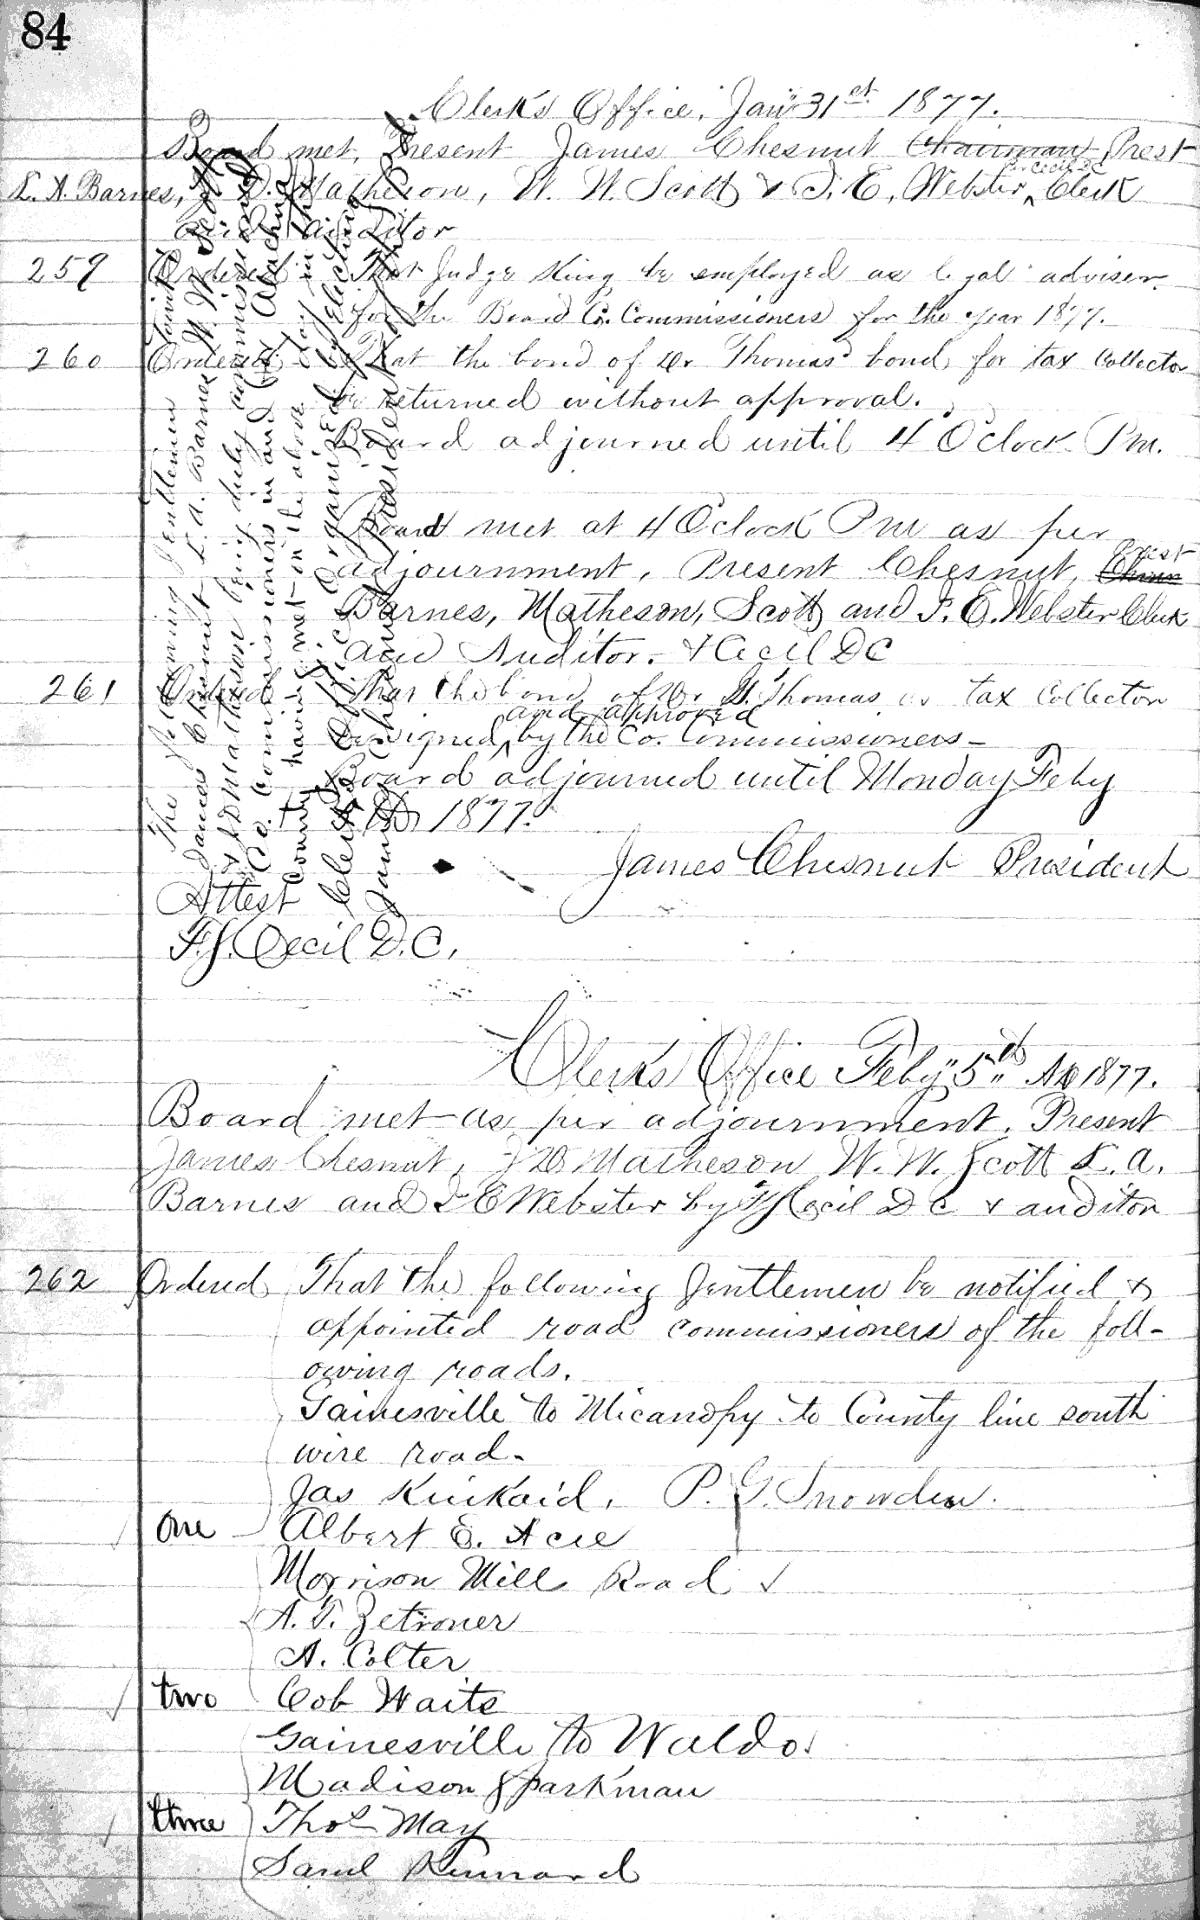 84
Clerks Office, Jany 31st 1877.
Board met, Present James Chesnut Chairman Prest
L. A. Barnes, J. D. Matheson, W. W. Scott & J. E. Webster, Clerk
per Cecil DC
and Auditor
259 Ordered That Judge King be employed as legal adviser
for the Board Co. Commissioners for the year 1877.
260 Ordered That the bond of Wr Thomas bond for tax Collector
be returned without approval.
Board adjourned until 4 O'Clock Pm.
Board met at 4 O'Clock Pm as per
adjournment, Present Chesnut, Chmn Prest
Barnes, Matheson, Scott and J. E. Webster Clerk
and Auditor. & Cecil DC
261 Ordered That the bond of Wr H. Thomas as tax Collector
be signed, and approved by the Co. Commissioners-
Board adjourned until Monday Feby
5th 1877.
James Chesnut President
Attest
F. J. Cecil D. C.
The following Gentlemen
James Chesnut L. A. Barnes W. W. Scott
& J D Matheson being duly commissioned
Co. Commissioners in and for Alachua
County having met on the above day in the
Clerks Office organized by electing
James Chesnut President
Clerks Office Feby 5th AD 1877.
Board met as per adjournment. Present
James Chesnut, J D Matheson W. W. Scott L. A.
Barnes and J E Webster by F J Cecil D C & auditor
262 Ordered That the following Gentlemen be notified &
appointed road commissioners of the foll-
owing roads.
Gainesville to Micanopy to County line south
wire road.
Jas Kinkaid, P. G. Snowden.
one Albert E. Acie
Morrison Mill Road
A. T. Zetrouer
A. Colter
two Cob Waits
Gainesville to Waldo.
Madison Sparkman
three Thos May
Saml Kinnard